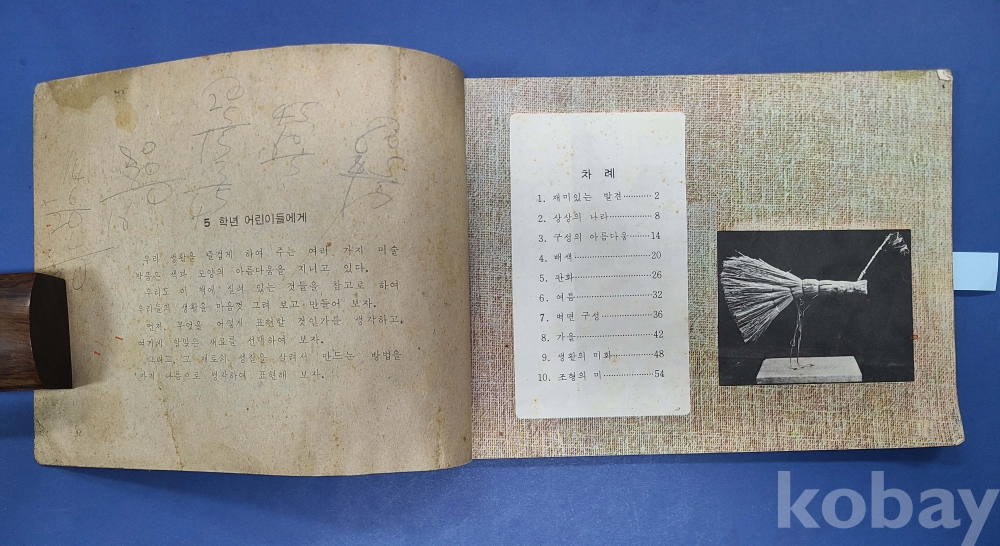 5 학년 어린이들에게
우리 생활을 즐겁게 하여 주는 여러 가지 미술
작품은 색과 모양의 아름다움을 지니고 있다.
우리도 이 책에 실려 있는 것들을 참고로 하여
우리들의 생활을 마음껏 그려 보고 만들어 보자.
먼저, 무엇을 어떻게 표현할 것인가를 생각하고,
여기에 알맞은 재료를 선택하여 보자.
그리고, 그 재료의 성질을 살려서 만드는 방법을
생각하여 표현해 보자.
차 례
1. 재미있는 발견 ··········· 2
2. 상상의 나라 ··········· 8
3. 구성의 아름다움 ······· 14
4. 배색 ··················· 20
5. 판화 ··················· 26
6. 여름 ··················· 32
7. 벽면 구성 ············· 36
8. 가을 ··················· 42
9. 생활의 미화 ··········· 48
10. 조형의 미 ············· 54
kobay